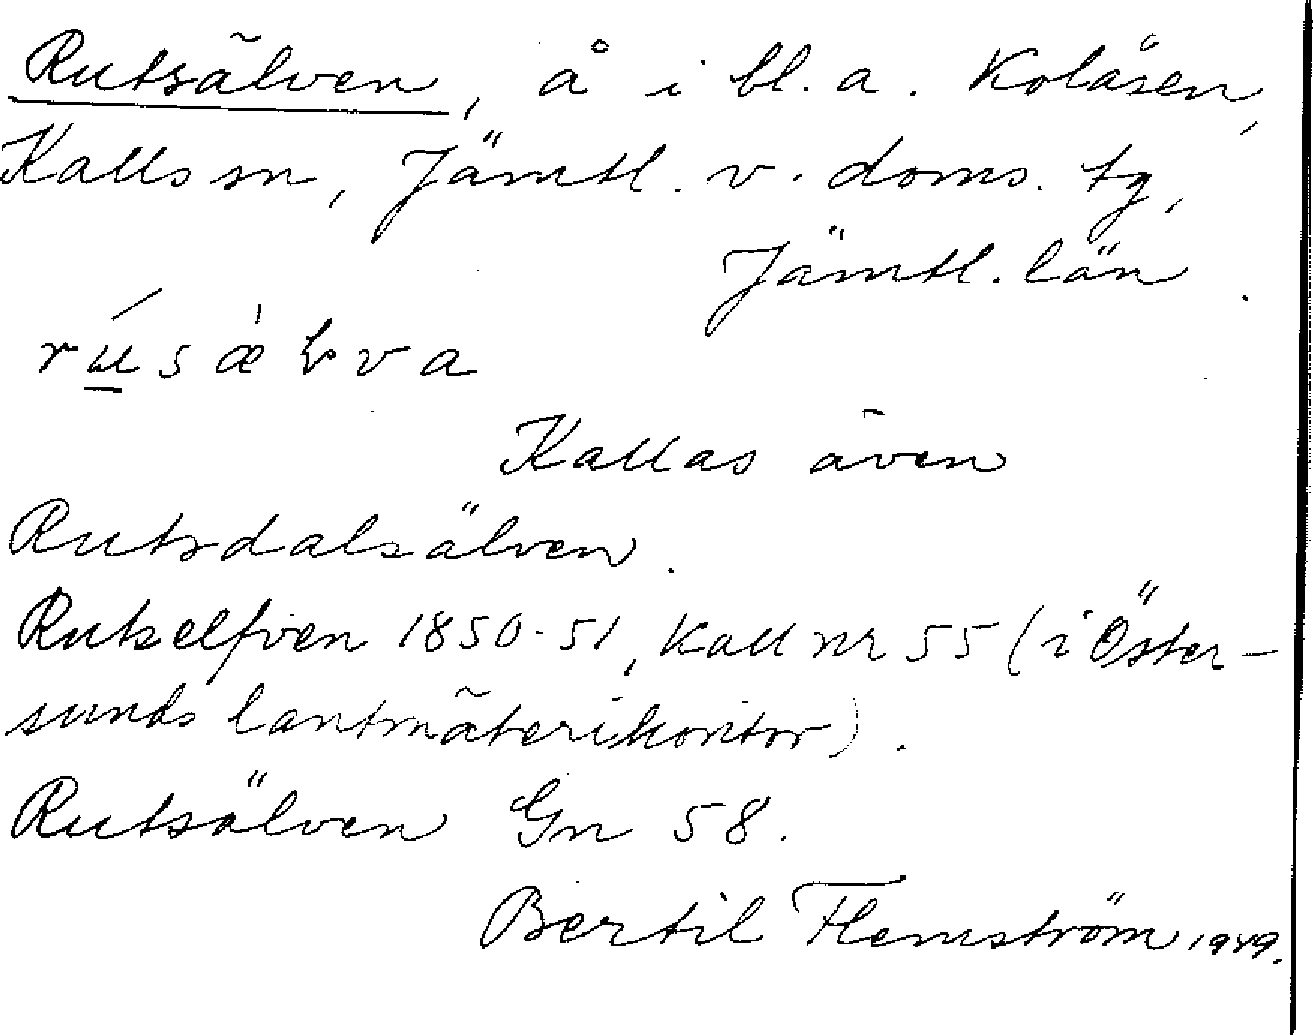 Rutsälven, å i bl. a. Kolåsen,
Kalls sn, Jämtl. v. doms. tg,
Jämtl. län.
Kallas även
Rutsdalsälven.
Rutselfven 1850-51, Kall nr 55 (i Öster-
sunds lantmäterikontor).
Rutsälven Gn 58.
Bertil Flemström 1949.